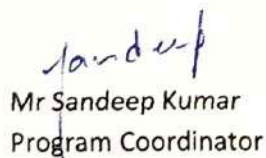 Sandeep
Mr Sandeep Kumar
Program Coordinator